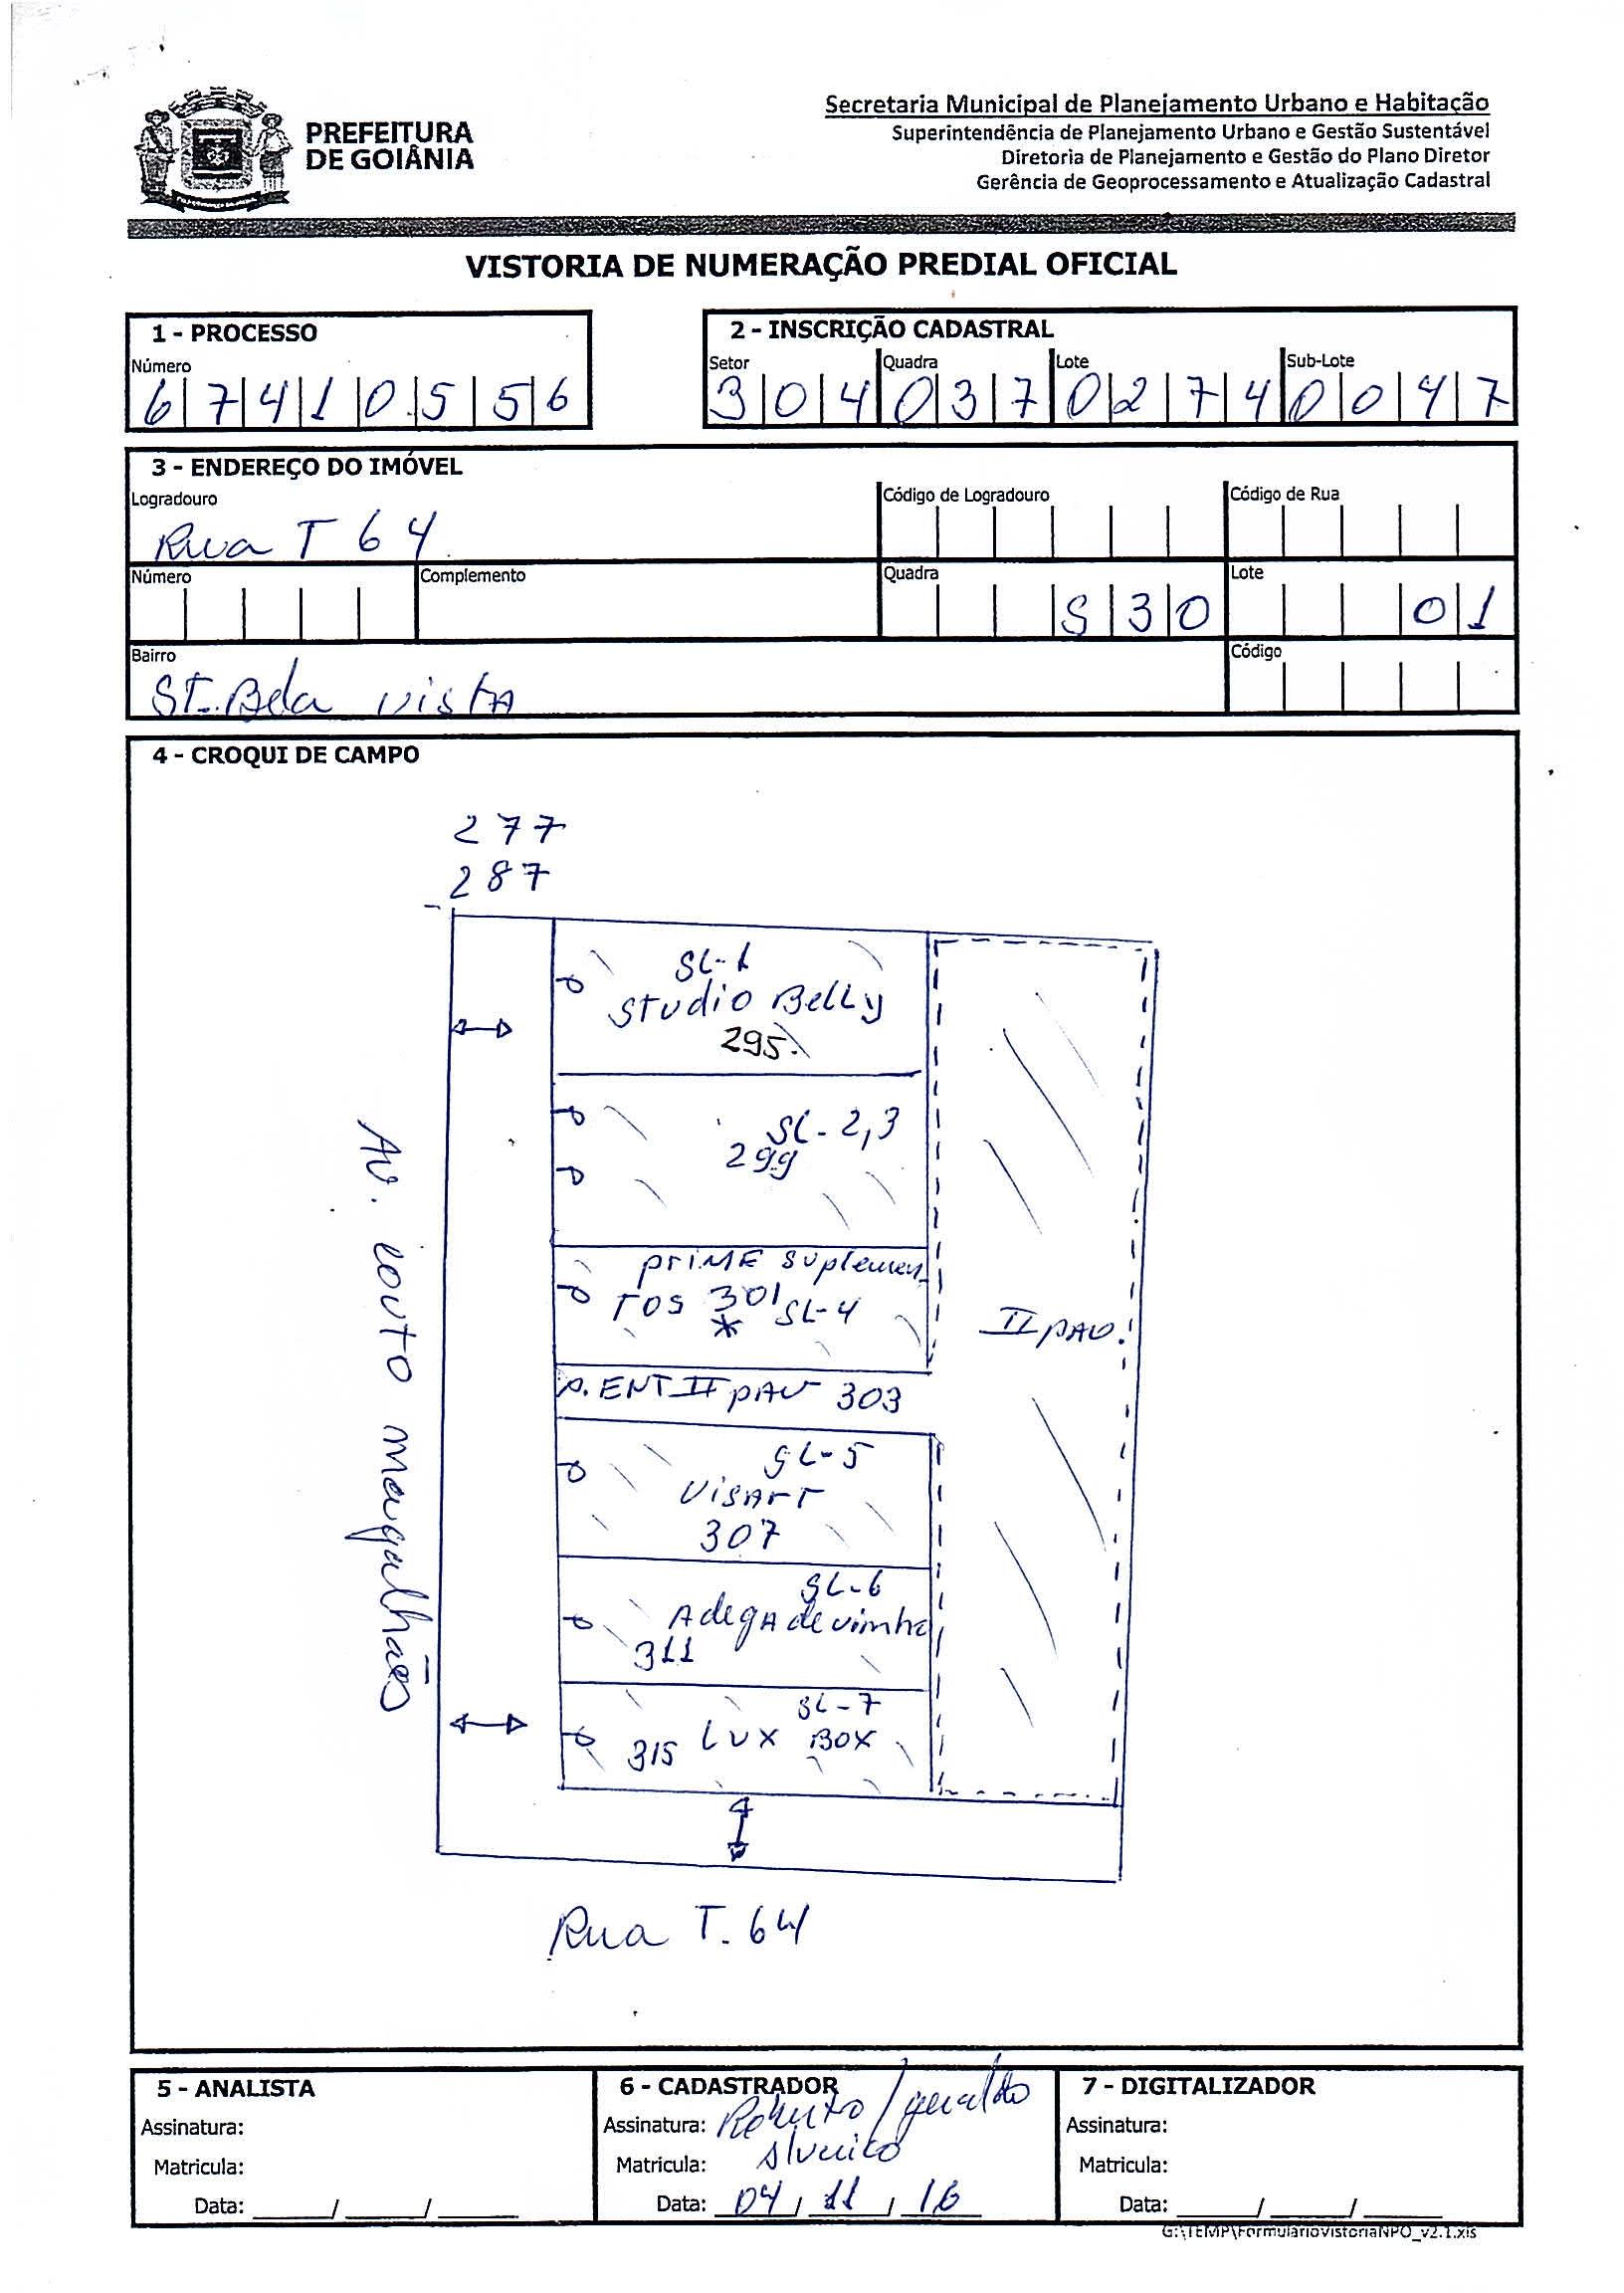 PREFEITURA
DE GOIÂNIA
Secretaria Municipal de Planejamento Urbano e Habitação
Superintendência de Planejamento Urbano e Gestão Sustentável
Diretoria de Planejamento e Gestão do Plano Diretor
Gerência de Geoprocessamento e Atualização Cadastral
VISTORIA DE NUMERAÇÃO PREDIAL OFICIAL
1 - PROCESSO
Número
6 7 4 1 0 5 5 6
2 - INSCRIÇÃO CADASTRAL
Setor Quadra Lote Sub-Lote
3 0 4 0 3 7 0 2 7 4 0 0 4 7
3 - ENDEREÇO DO IMÓVEL
Logradouro Código de Logradouro Código de Rua
Rua T 64
Número Complemento Quadra Lote
S 3 0 0 1
Bairro Código
ST. Bela vista
4 - CROQUI DE CAMPO
277
287
SL-1
STUDIO BeLLy
295.
SL-2,3
299
PRIME Suplemen
TOS 301 SL-4
*
P. ENT II PAV 303
II PAV.
SL-5
VISART
307
SL-6
Adega de vinho
311
SL-7
315 LUX BOX
Av. couto magalhães
Rua T. 64
5 - ANALISTA
Assinatura:
Matricula:
Data: ____/____/____
6 - CADASTRADOR
Assinatura: /geraldo
Matricula:
Data: 04/11/16
7 - DIGITALIZADOR
Assinatura:
Matricula:
Data: ____/____/____
G:\TEMP\FormularioVistoriaNPO_v2.1.xls